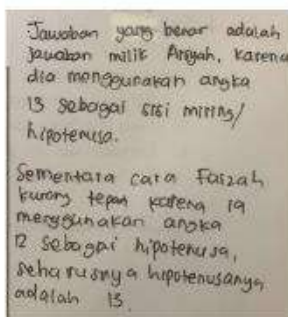 Jawaban yang benar adalah
jawaban milik Aisyah, karena
dia menggunakan angka
13 sebagai sisi miring/
hipotenusa.
Sementara cara Faizah
kurang tepat karena ia
menggunakan angka
12 sebagai hipotenusa,
seharusnya hipotenusanya
adalah 13.